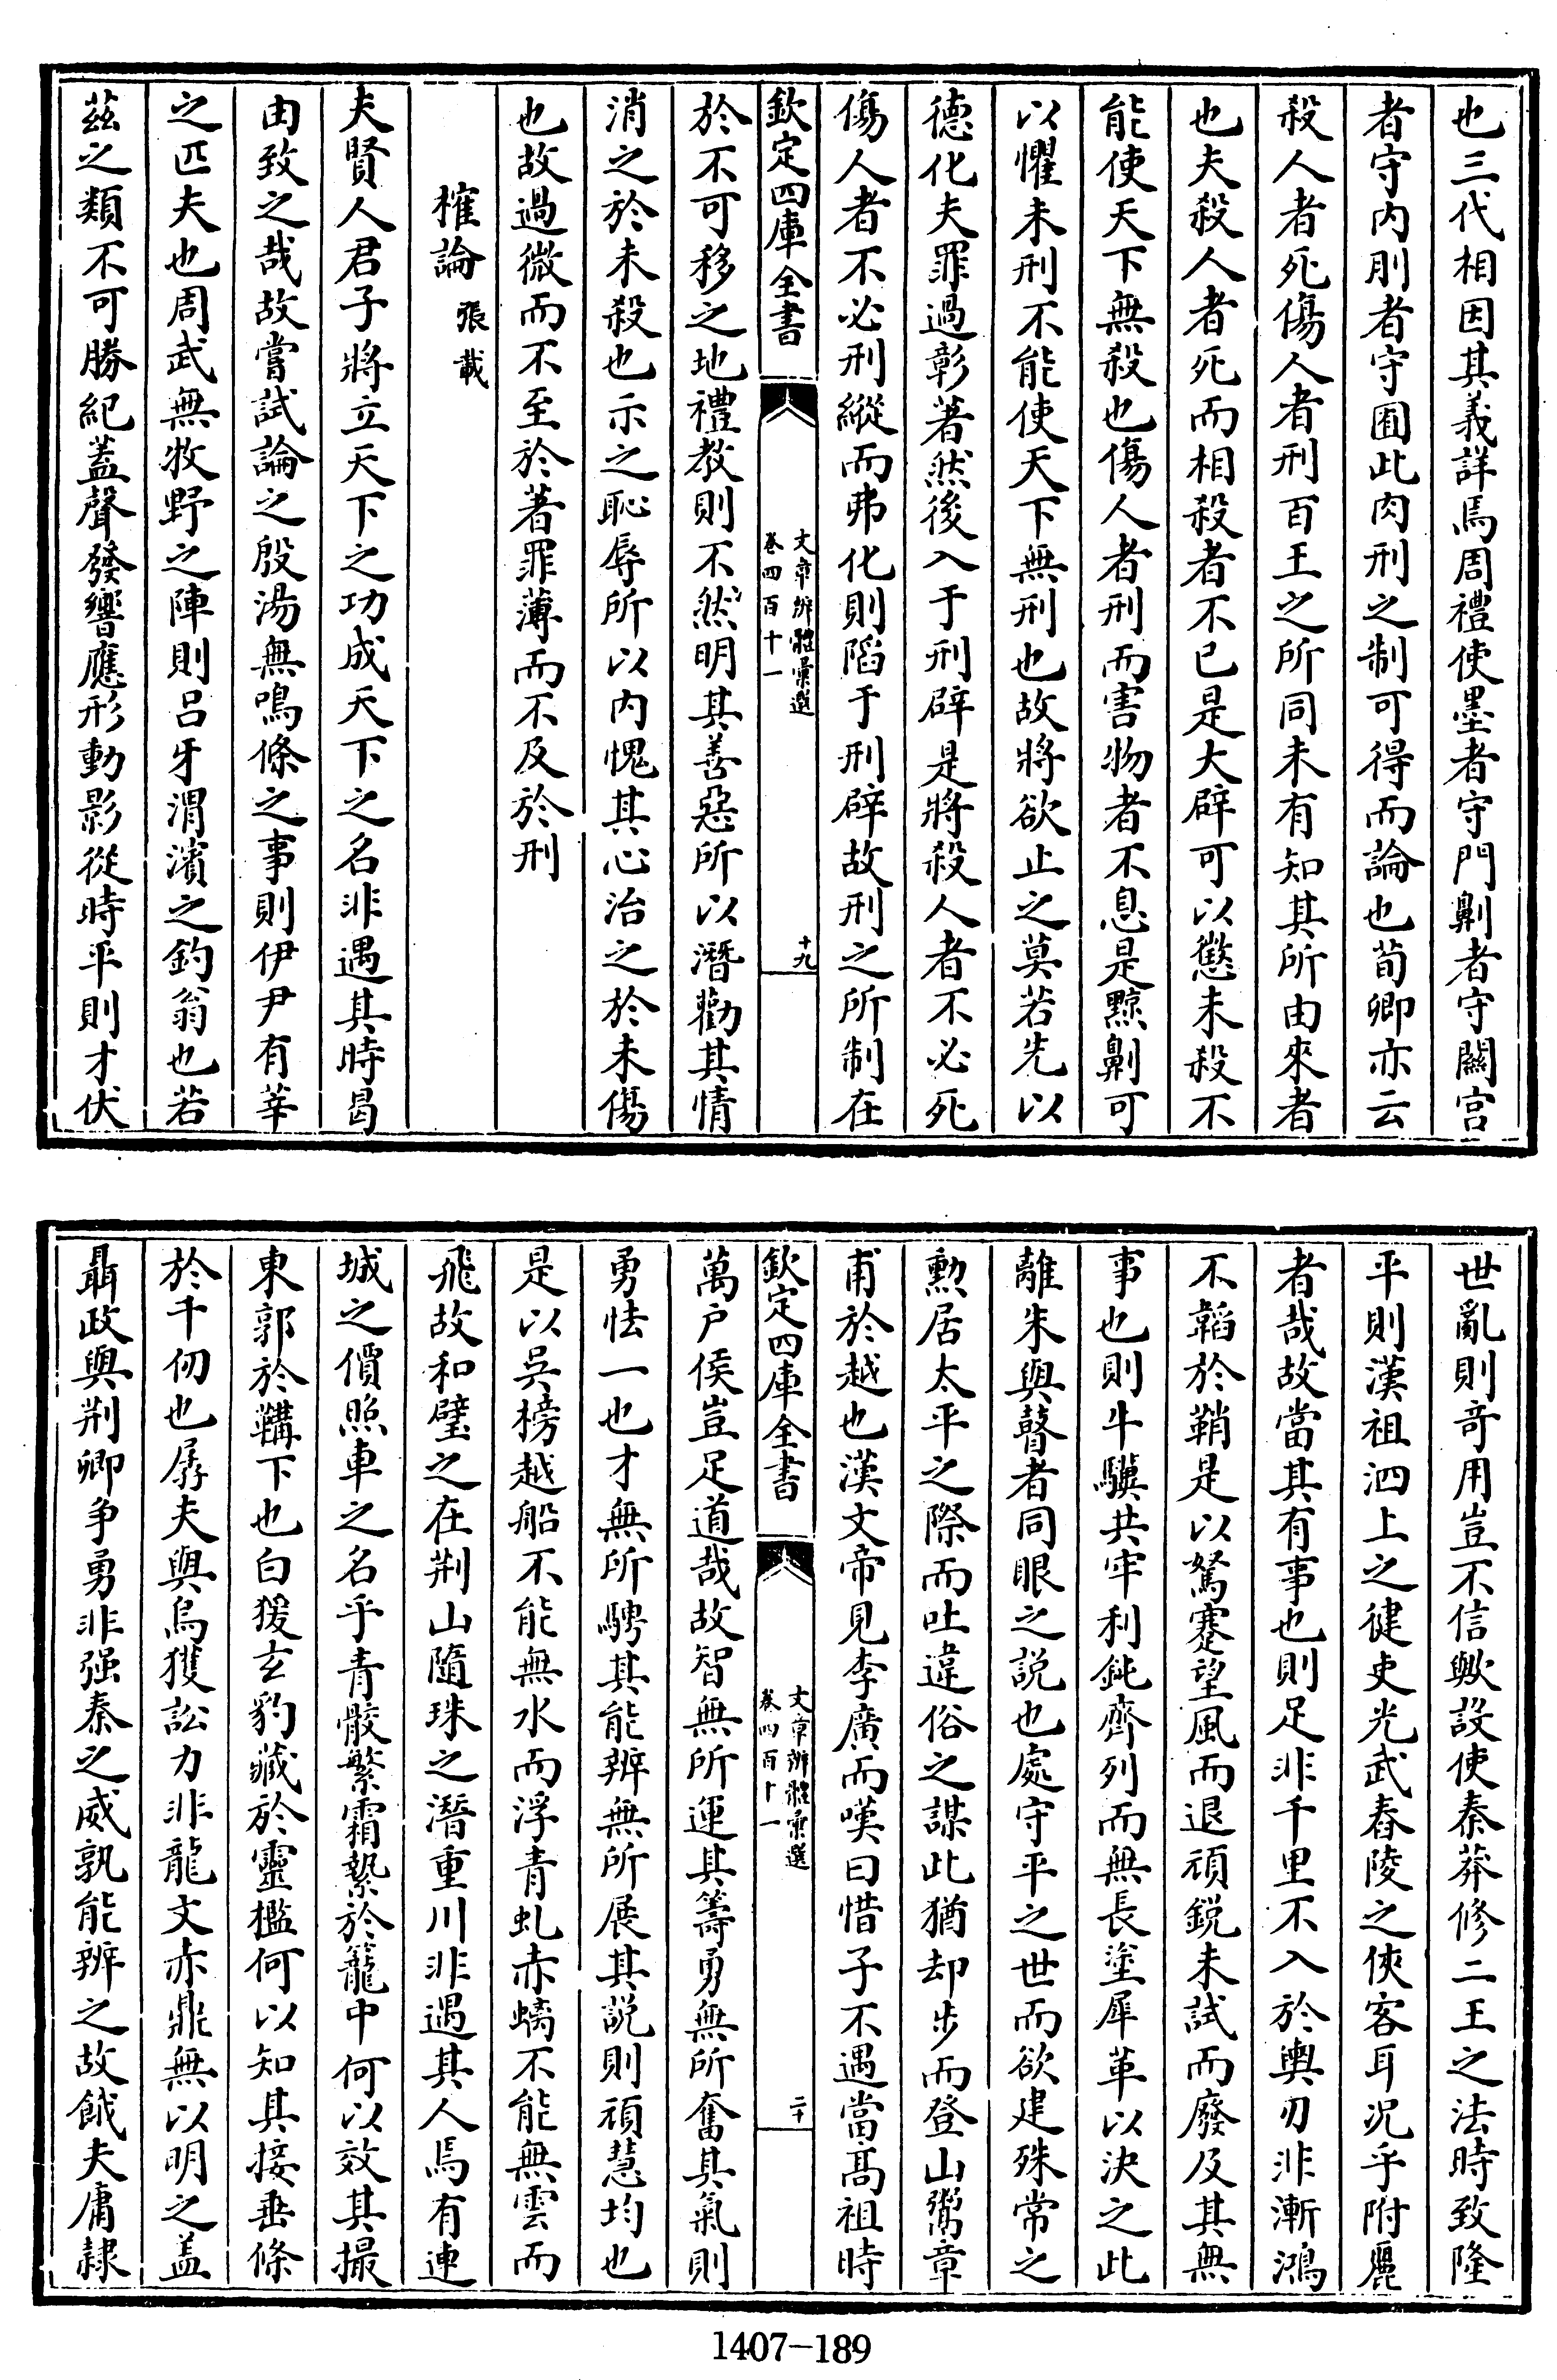 也三代相因其義詳焉周禮使墨者守門劓者守關宮
者守内刖者守囿此肉刑之制可得而論也荀卿亦云
殺人者死傷人者刑百王之所同未有知其所由來者
也夫殺人者死而相殺者不已是大辟可以懲未殺不
能使天下無殺也傷人者刑而害物者不息是黥劓可
以懼未刑不能使天下無刑也故將欲止之莫若先以
德化夫罪過彰著然後入于刑辟是將殺人者不必死
傷人者不必刑縱而弗化則陷于刑辟故刑之所制在
欽定四庫全書
文章辨體彙選
卷四百十一
十九
於不可移之地禮教則不然明其善惡所以潛勸其情
消之於未殺也示之恥辱所以内愧其心治之於未傷
也故過微而不至於著罪薄而不及於刑
榷論 張載
夫賢人君子將立天下之功成天下之名非遇其時曷
由致之哉故嘗試論之殷湯無鳴條之事則伊尹有莘
之匹夫也周武無牧野之陣則呂牙渭濱之釣翁也若
茲之類不可勝紀蓋聲發響應形動影從時平則才伏
世亂則奇用豈不信歟設使秦莽修二王之法時致隆
平則漢祖泗上之健吏光武舂陵之俠客耳况乎附麗
者哉故當其有事也則足非千里不入於輿刃非斬鴻
不韜於鞘是以駑蹇望風而退頑鋭未試而廢及其無
事也則牛驥共牢利鈍齊列而無長塗犀革以決之此
離朱與瞽者同眼之説也處守平之世而欲建殊常之
勲居太平之際而吐違俗之謀此猶却步而登山鬻章
甫於越也漢文帝見李廣而嘆曰惜子不遇當高祖時
欽定四庫全書
文章辨體彙選
卷四百十一
二十
萬户侯豈足道哉故智無所運其籌勇無所奮其氣則
勇怯一也才無所騁其能辨無所展其説則頑慧均也
是以吳榜越船不能無水而浮青虬赤螭不能無雲而
飛故和璧之在荆山隨珠之潛重川非遇其人焉有連
城之價照車之名乎青骹繁霜縶於籠中何以效其撮
東郭於韝下也白猨玄豹藏於靈檻何以知其接垂條
於千仞也孱夫與烏獲訟力非龍文赤鼎無以明之蓋
聶政與荆卿爭勇非强秦之威孰能辨之故餓夫庸隷
1407-189